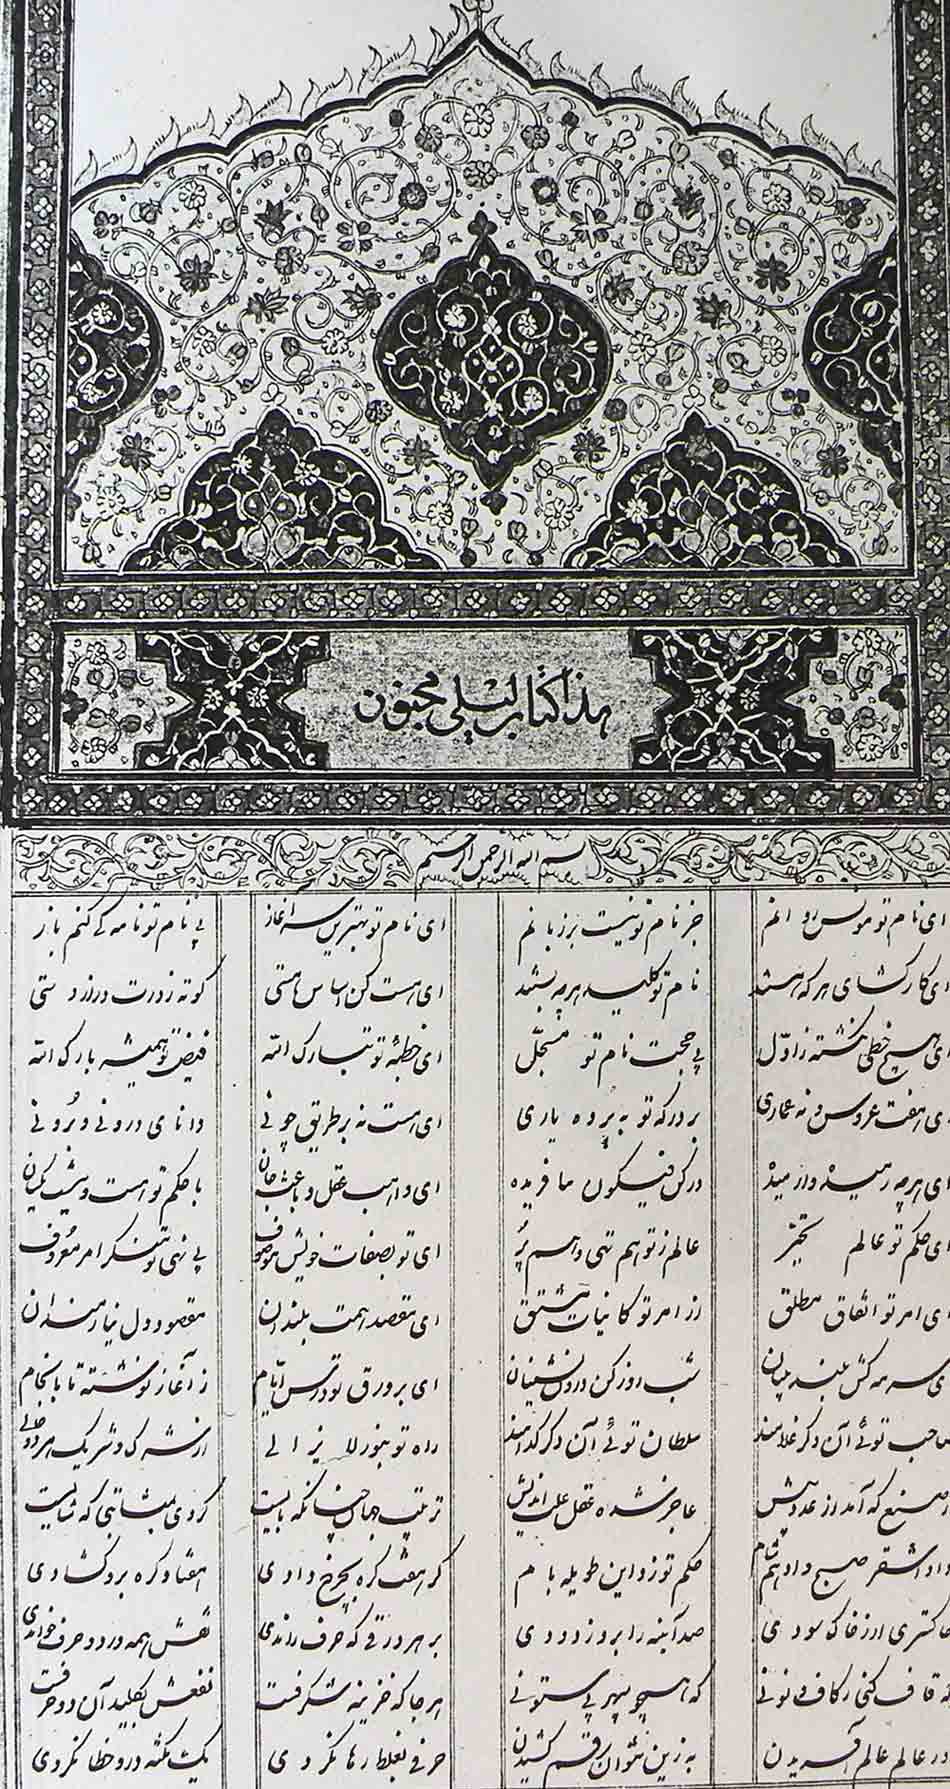 هذا کتاب لیلی مجنون
بسم الله الرحمن الرحیم
ای نام تو مونس روانم جز نام تو نیست بر زبانم ای نام تو بهترین سرآغاز بی نام تو نامه کی کنم باز
ای کارگشای هر که هستند نام تو کلید هر چه بستند ای هست کن اساس هستی کوته ز درت دراز دستی
ای هیچ خطی نگشته ز اول بی حجت نام تو مسجل ای خطبهٔ تو تبارک الله فیض تو همیشه بارک الله
ای هفت عروس و نه عماری بر درگه تو به پرده یاری ای هست نه بر طریق چونی دانای درونی و برونی
ای هر چه رمیده وارمیده در کن فیکون ما فریده ای واهب عقل و باعث جان با حکم تو هست و نیست یکسان
ای حکم تو عالم تحیر عالم ز تو هم تهی و هم پر ای تو بصفات خویش موصوف بی نهی تو منکر امر معروف
ای امر تو اتفاق مطلق از امر تو کائنات مشتق ای مقصد همت بلندان مقصود دل نیازمندان
ای سرمه کش بلند بینان شب روز کن درون نشینان ای بر ورق تو درس ایام ز آغاز نوشته تا بانجام
صاحب توئی آن دگر غلامند سلطان توئی آن دگر کدامند راه تو بنور لایزالی از شرک و شریک هر دو خالی
صنع که آمد از عدد بیش عاجز شده عقل علت اندیش ترتیب جهان چنانکه بایست کردی بمثابتی که شایست
داد اشقر صبح و ادهم شام حکم تو زد این طویله بام گر هفت گره بچرخ دادی هفتاد گره بدو گشادی
خاکستری ار ز خاک سودی صد آینه را بدو زدودی بر هر ورقی که حرف راندی نقش همه در دو حرف خواندی
نه قاف کنی ز کاف و نونی که همچو سپهر بی ستونی هر جا که خزینه شگرفست قفلش بکلید آن دو حرفست
در عالم عالم آفریدن به زین نتوان رقم کشیدن حرفی بغلط رها نکردی یک نکته درو خطا نکردی